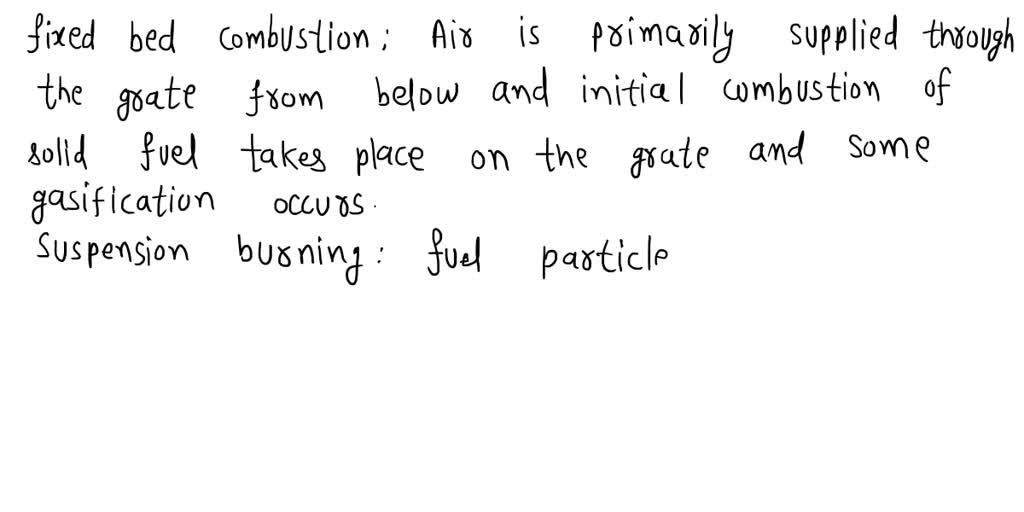 fixed bed combustion: Air is primarily supplied through
the grate from below and initial combustion of
solid fuel takes place on the grate and some
gasification occurs.
Suspension burning: fuel particle